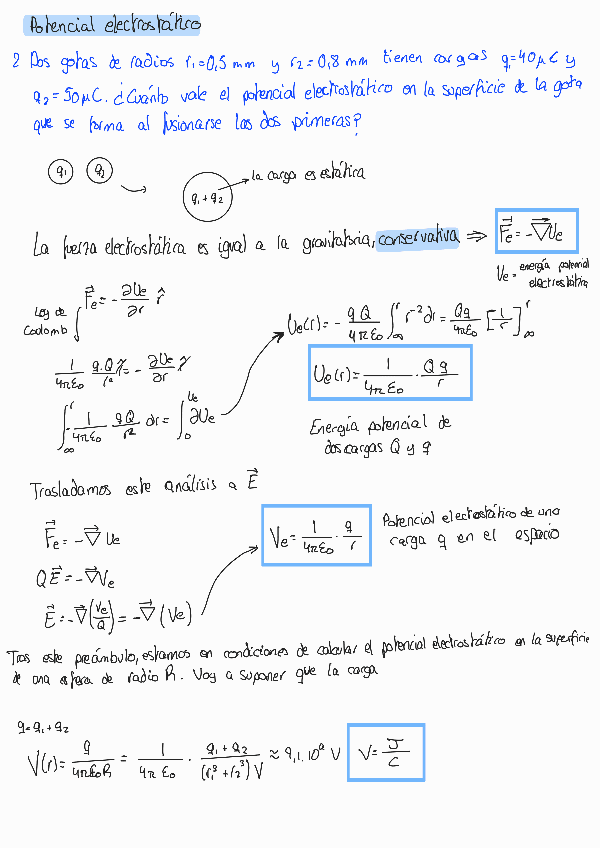 Potencial electrostático
2 Dos gotas de radios r₁=0,5 mm y r₂=0,8 mm tienen cargas q=40μC y
q₂=50μC. ¿Cuánto vale el potencial electrostático en la superficie de la gota
que se forma al fusionarse las dos primeras?
q₁ q₂ q₁+q₂ la carga es estática
La fuerza electrostática es igual a la gravitatoria, conservativa ⇒ F⃗e = -∇⃗Ue
Ue = energía potencial
electrostática
Ley de
Coulomb
F⃗e = - ∂Ue/∂r r̂
1/4πε₀ q·Q/r² r̂ = - ∂Ue/∂r r̂
∫_∞^r - 1/4πε₀ qQ/r² dr = ∫_0^Ue ∂Ue
Ue(r) = - qQ/4πε₀ ∫_∞^r r⁻² dr = Qq/4πε₀ [1/r]_∞^r
Ue(r) = 1/4πε₀ · Qq/r
Energía potencial de
dos cargas Q y q
Trasladamos este análisis a E⃗
F⃗e = -∇⃗ Ue
QE⃗ = -∇⃗Ve
E⃗ = -∇⃗(Ve/Q) = -∇⃗(Ve)
Ve = 1/4πε₀ · q/r
Potencial electrostático de una
carga q en el espacio
Tras este preámbulo, estamos en condiciones de calcular el potencial electrostático en la superficie
de una esfera de radio R. Voy a suponer que la carga
q=q₁+q₂
V(r) = q/4πε₀R = 1/4πε₀ · q₁+q₂/(r₁³+r₂³)V ≈ 9,1·10⁸ V
V = J/C